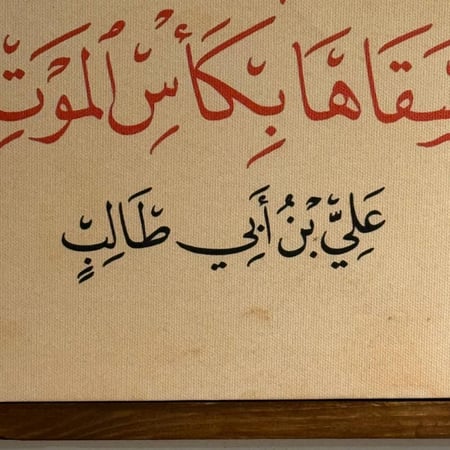 سَقَاهَا بِكَأْسِ الْمَوْتِ
عَلِيُّ بْنُ أَبِي طَالِبٍ